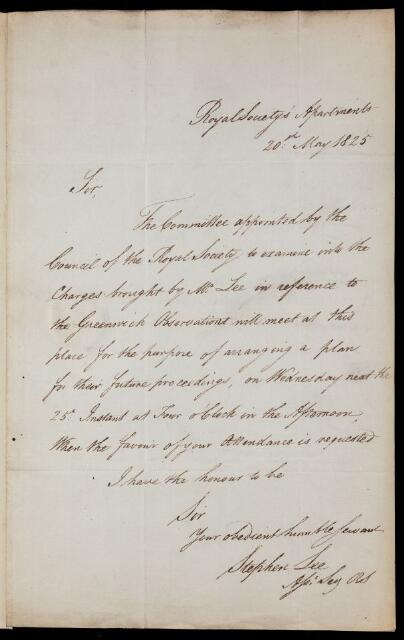 Royal Society's Apartments
20th May 1825
Sir,
The Committee appointed by the
Council of the Royal Society to examine into the
Charges brought by Mr. Lee in reference to
the Greenwich Observations will meet at this
place for the purpose of arranging a plan
for their future proceedings, on Wednesday next the
25th Instant at Four o'Clock in the Afternoon,
When the favour of your Attendance is requested
I have the honour to be
Sir
Your obedient humble Servant
Stephen Lee
Asst Secy RS